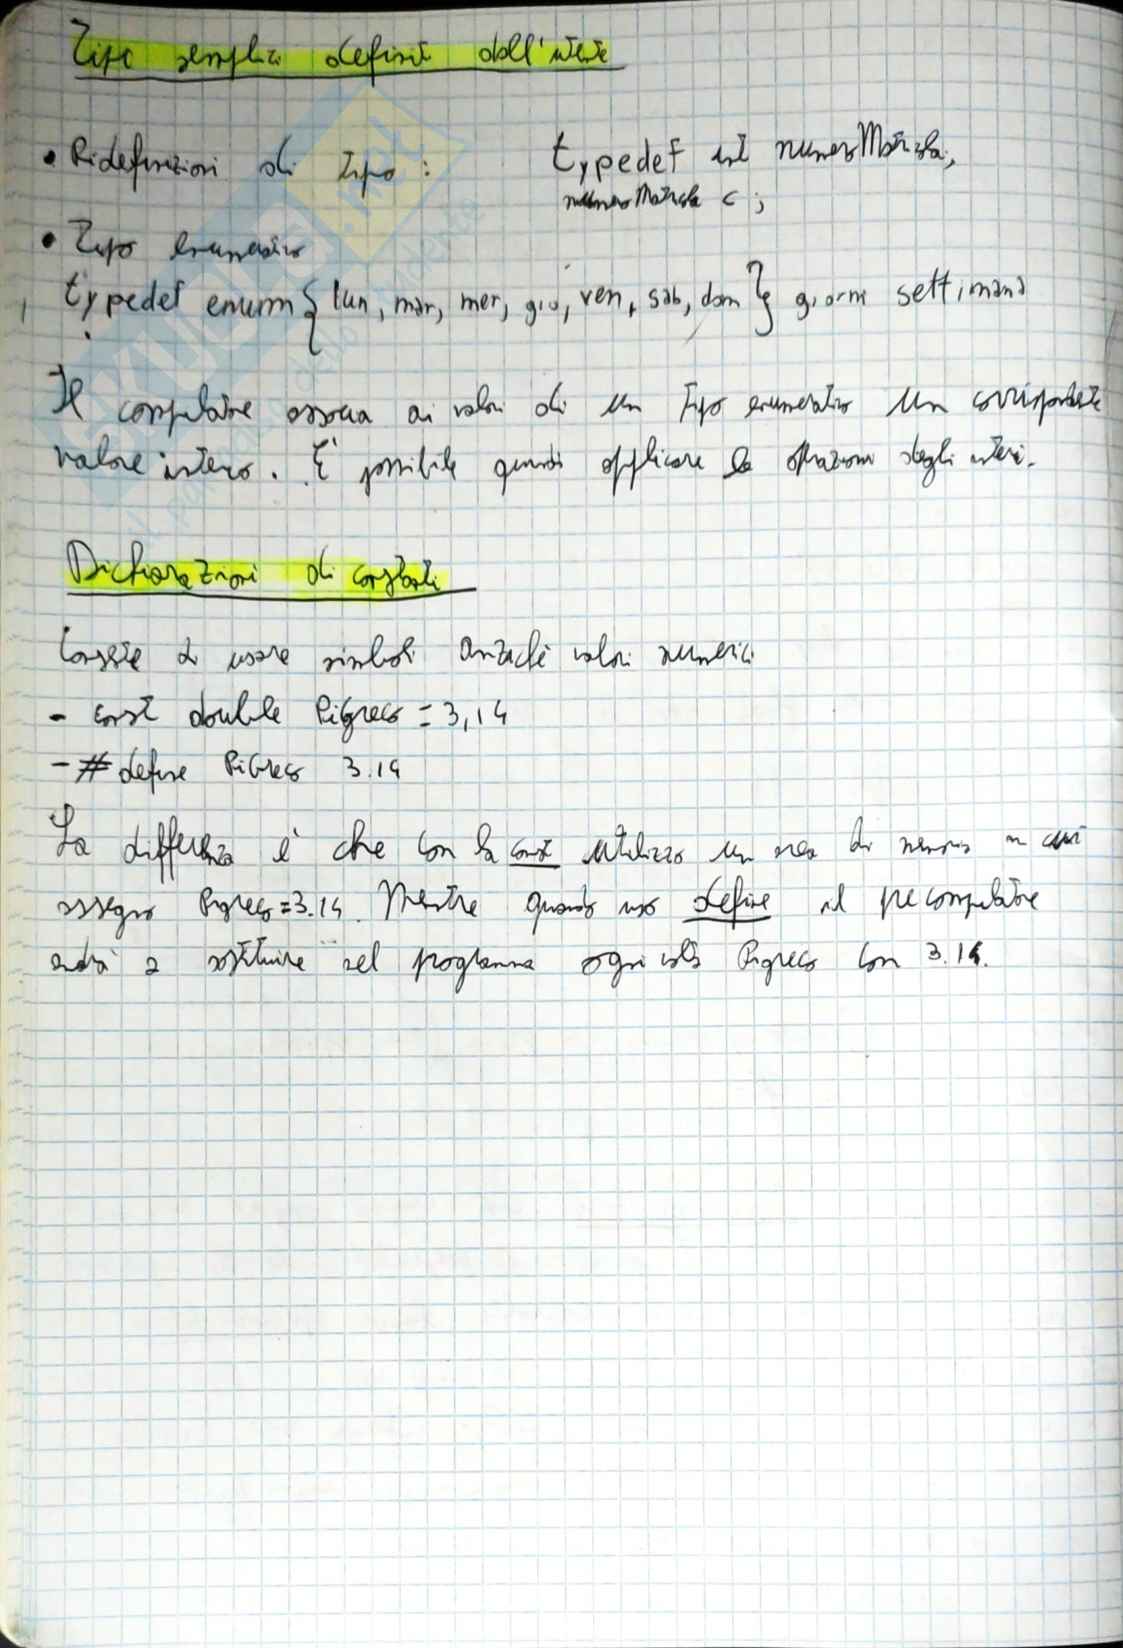 Tipo semplici definiti dall'utente
• Ridefinizioni di tipo: typedef int numeroMatricola;
numeroMatricola c;
• Tipo enumerativo
typedef enum { lun, mar, mer, gio, ven, sab, dom } giorni settimana
Il compilatore associa ai valori di un tipo enumerativo un corrispondente
valore intero. È possibile quindi applicare le operazioni degli interi.
Dichiarazioni di costanti
Consiste di usare simboli anzichè valori numerici
- const double PiGreco = 3,14
- # define PiGreco 3.14
La differenza è che con la const utilizzo un area di memoria in cui
assegno Pigreco=3.14. Mentre quando uso define il precompilatore
andrà a sostituire nel programma ogni volta Pigreco con 3.14.